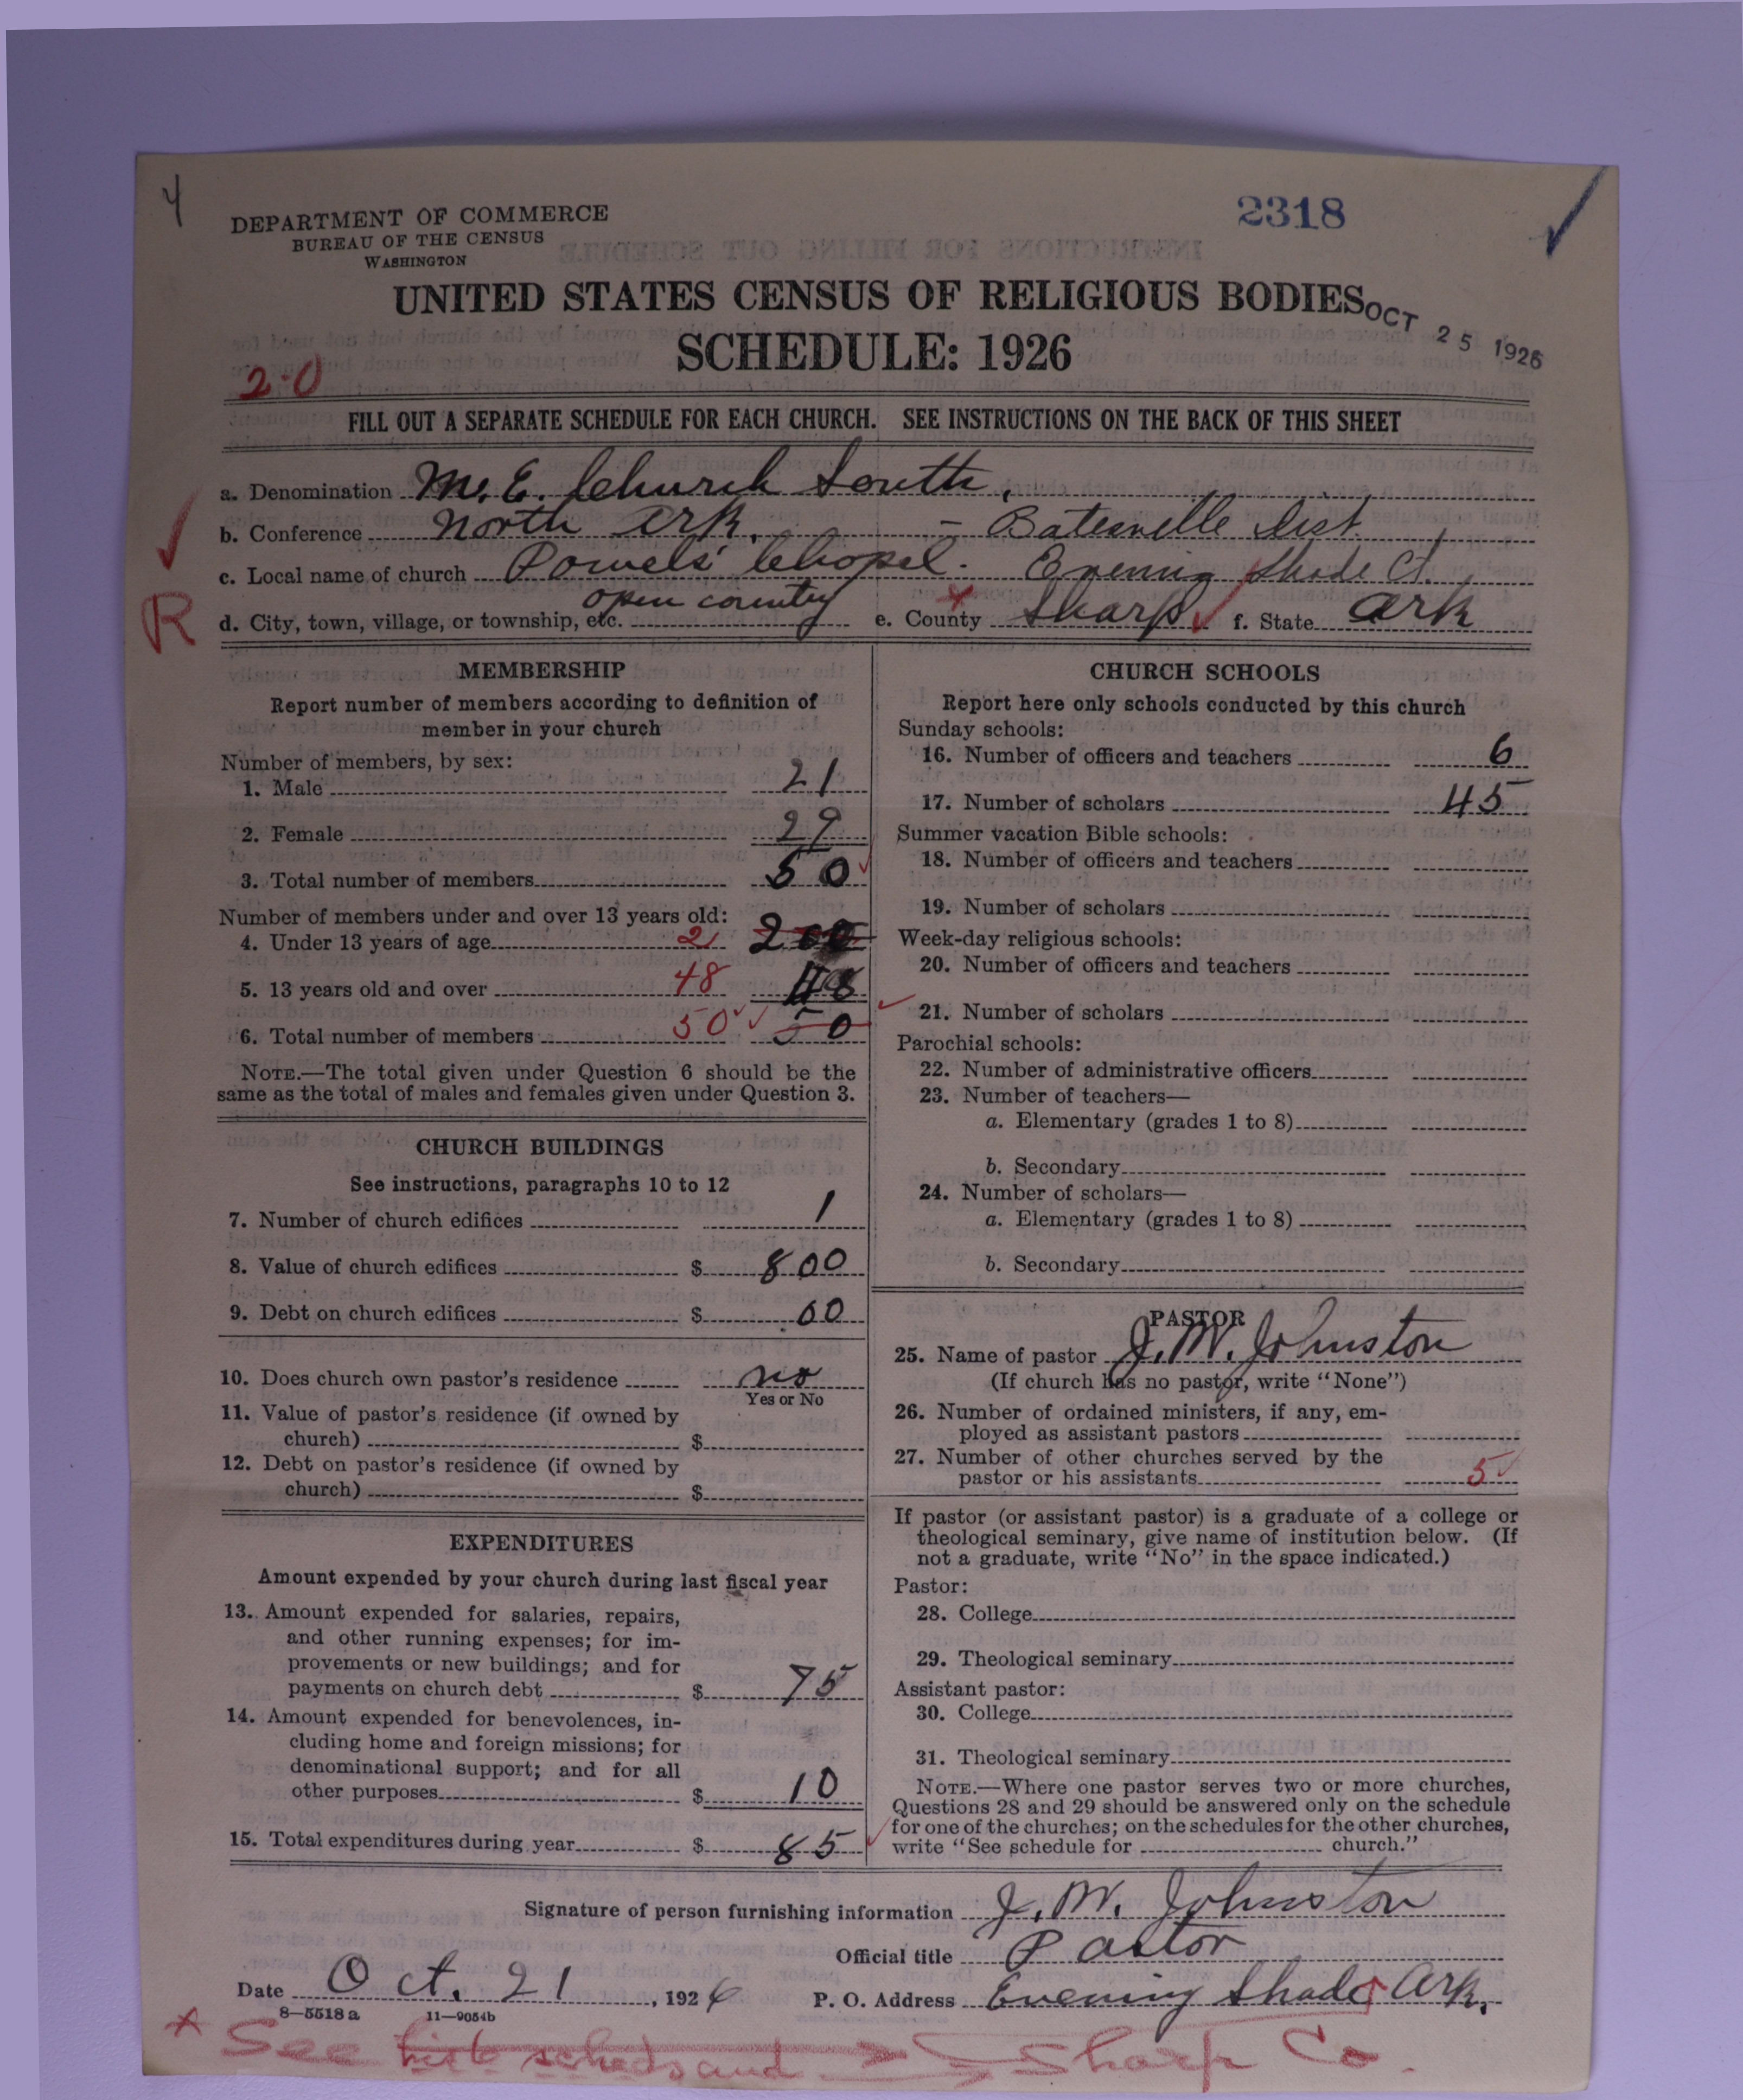 4
DEPARTMENT OF COMMERCE
BUREAU OF THE CENSUS
WASHINGTON
2318
UNITED STATES CENSUS OF RELIGIOUS BODIES
OCT 25 1926
SCHEDULE: 1926
2-0
FILL OUT A SEPARATE SCHEDULE FOR EACH CHURCH. SEE INSTRUCTIONS ON THE BACK OF THIS SHEET
a. Denomination M. E. Church South,
b. Conference North Ark. - Batesville Dist.
c. Local name of church Powels' Chapel. Evening Shade Ct.
R
d. City, town, village, or township, etc. open country e. County Sharp f. State Ark
MEMBERSHIP
Report number of members according to definition of
member in your church
Number of members, by sex:
1. Male 21
2. Female 29
3. Total number of members 50
Number of members under and over 13 years old:
4. Under 13 years of age 2 200
5. 13 years old and over 48 48
6. Total number of members 50 50
NOTE.—The total given under Question 6 should be the
same as the total of males and females given under Question 3.
CHURCH BUILDINGS
See instructions, paragraphs 10 to 12
7. Number of church edifices 1
8. Value of church edifices $ 800
9. Debt on church edifices $ 00
10. Does church own pastor's residence no
Yes or No
11. Value of pastor's residence (if owned by
church) $
12. Debt on pastor's residence (if owned by
church) $
EXPENDITURES
Amount expended by your church during last fiscal year
13. Amount expended for salaries, repairs,
and other running expenses; for im-
provements or new buildings; and for
payments on church debt $ 75
14. Amount expended for benevolences, in-
cluding home and foreign missions; for
denominational support; and for all
other purposes $ 10
15. Total expenditures during year $ 85
CHURCH SCHOOLS
Report here only schools conducted by this church
Sunday schools:
16. Number of officers and teachers 6
17. Number of scholars 45
Summer vacation Bible schools:
18. Number of officers and teachers
19. Number of scholars
Week-day religious schools:
20. Number of officers and teachers
21. Number of scholars
Parochial schools:
22. Number of administrative officers
23. Number of teachers—
a. Elementary (grades 1 to 8)
b. Secondary
24. Number of scholars—
a. Elementary (grades 1 to 8)
b. Secondary
PASTOR
25. Name of pastor J. W. Johnston
(If church has no pastor, write "None")
26. Number of ordained ministers, if any, em-
ployed as assistant pastors
27. Number of other churches served by the
pastor or his assistants 5
If pastor (or assistant pastor) is a graduate of a college or
theological seminary, give name of institution below. (If
not a graduate, write "No" in the space indicated.)
Pastor:
28. College
29. Theological seminary
Assistant pastor:
30. College
31. Theological seminary
NOTE.—Where one pastor serves two or more churches,
Questions 28 and 29 should be answered only on the schedule
for one of the churches; on the schedules for the other churches,
write "See schedule for church."
Signature of person furnishing information J. W. Johnston
Official title Pastor
Date Oct. 21, 1926 P. O. Address Evening Shade Ark.
8—5518 a 11—9054b
See Sharp Co.